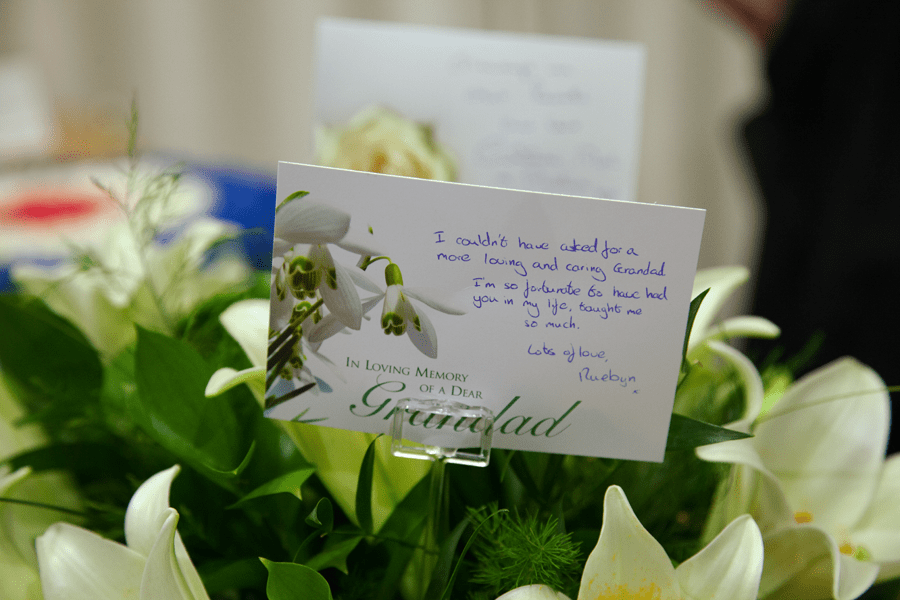 I couldn't have asked for a
more loving and caring Grandad.
I'm so fortunate to have had
you in my life, taught me
so much.
Lots of love,
Ruebyn
x
In Loving Memory
of a Dear
Grandad